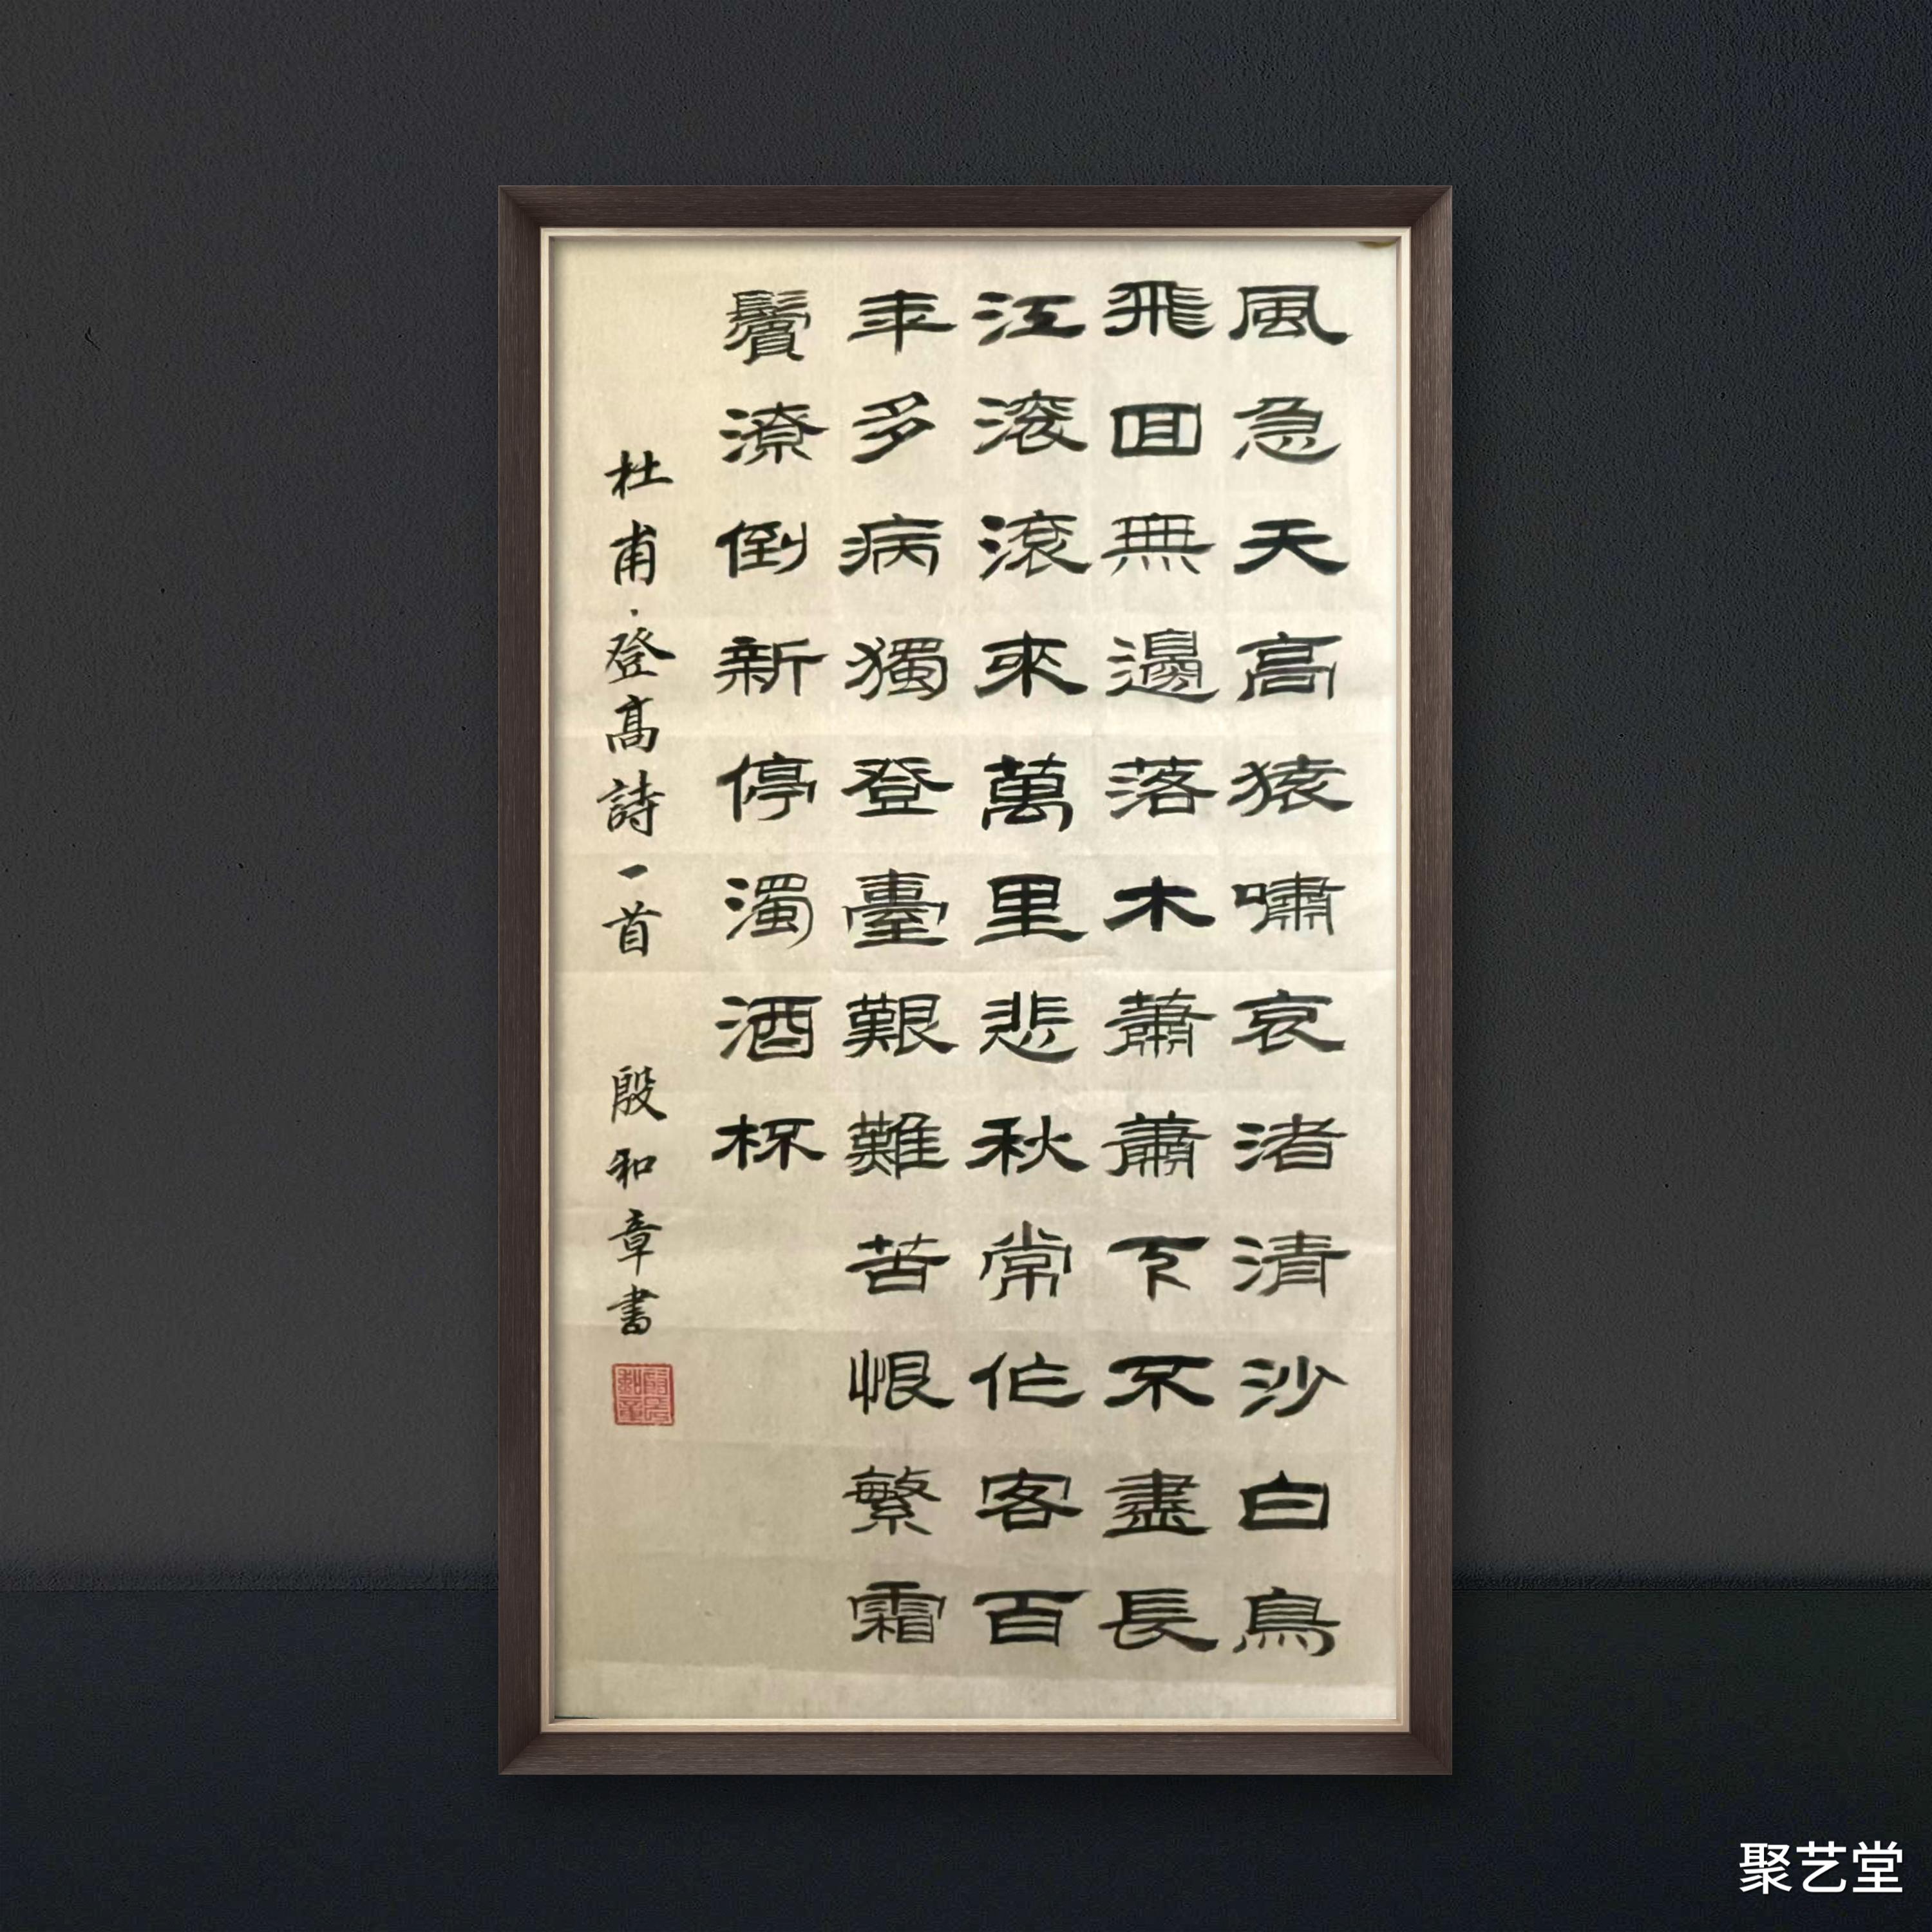 風急天高猿嘯哀渚清沙白鳥
飛回無邊落木蕭蕭下不盡長
江滾滾來萬里悲秋常作客百
年多病獨登臺艱難苦恨繁霜
鬢潦倒新停濁酒杯
杜甫·登高詩一首 殷和章書
聚艺堂